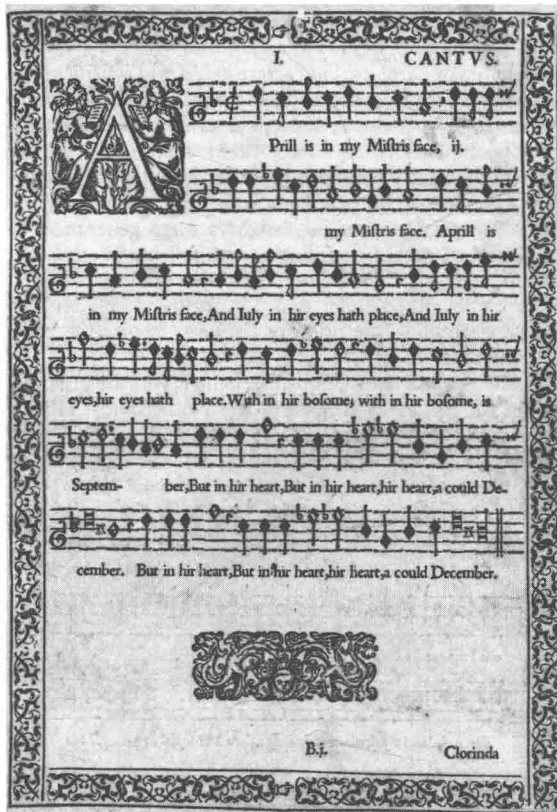 I. CANTVS.
APrill is in my Miſtris face, ij.
my Miſtris face. Aprill is
in my Miſtris face, And Iuly in hir eyes hath place, And Iuly in hir
eyes, hir eyes hath place. With in hir boſome, with in hir boſome, is
Septem- ber, But in hir heart, But in hir heart, hir heart, a could De-
cember. But in hir heart, But in hir heart, hir heart, a could December.
B.j. Clorinda